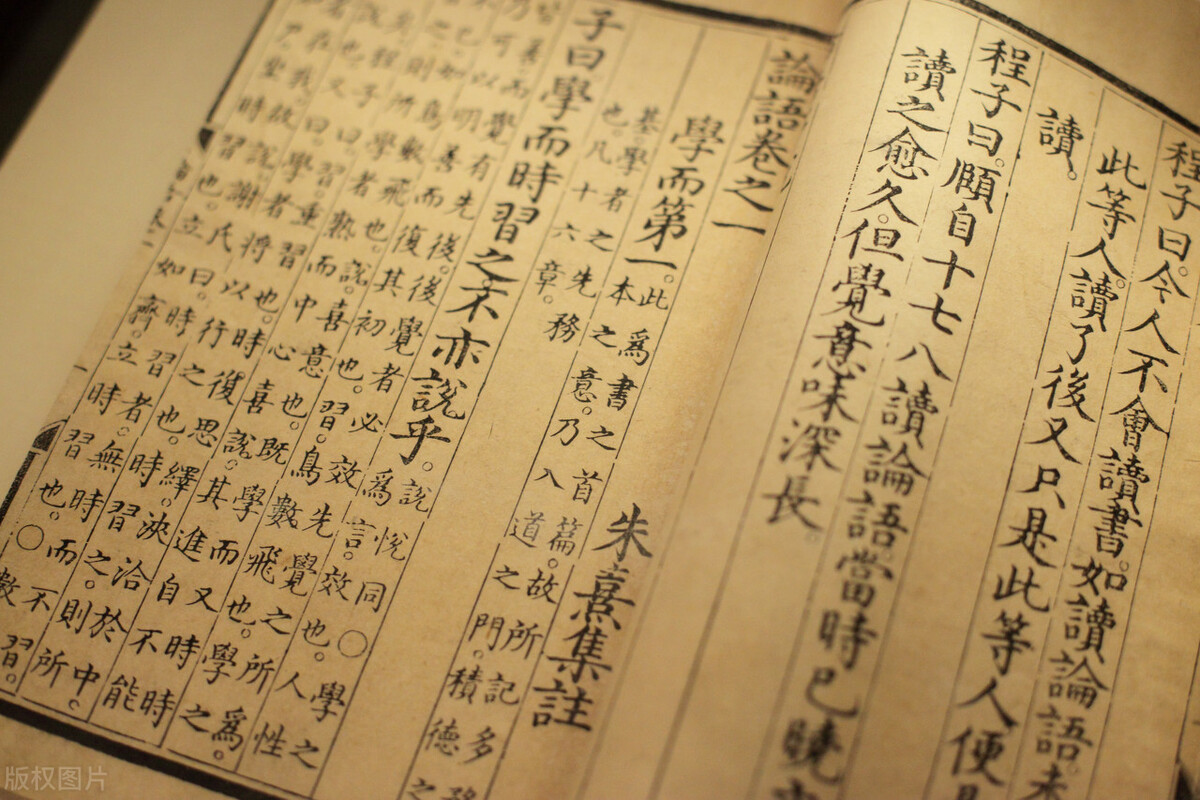 程子曰。今人不會讀書。如讀論語。未
此等人。讀了後又只是此等人便
讀。
程子曰。頤自十七八讀論語當時已曉
讀之愈久。但覺意味深長。
論語卷之一
朱熹集註
學而第一。此為書之首篇。故所記多務
本之意。乃入道之門。積德之
基學者之先務
也。凡十六章。
子曰學而時習之不亦說乎。說悅同○學之
為言。效也。人性
皆善。而覺有先後。後覺者必效先覺之所為。
乃可以明善而復其初也。習。鳥數飛也。學之
不已。如鳥數飛也。說。喜意也。既學而又時時
習之。則所學者熟。而中心喜說。其進自不能
程子曰。習重習也。時復思繹。浹洽於中。
說也。又曰。學者將以行之也。時習之。則所
在我。故說。謝氏曰。時習者。無時而不習。
尸。坐時習也。立如齊。立時習也。○
版权图片